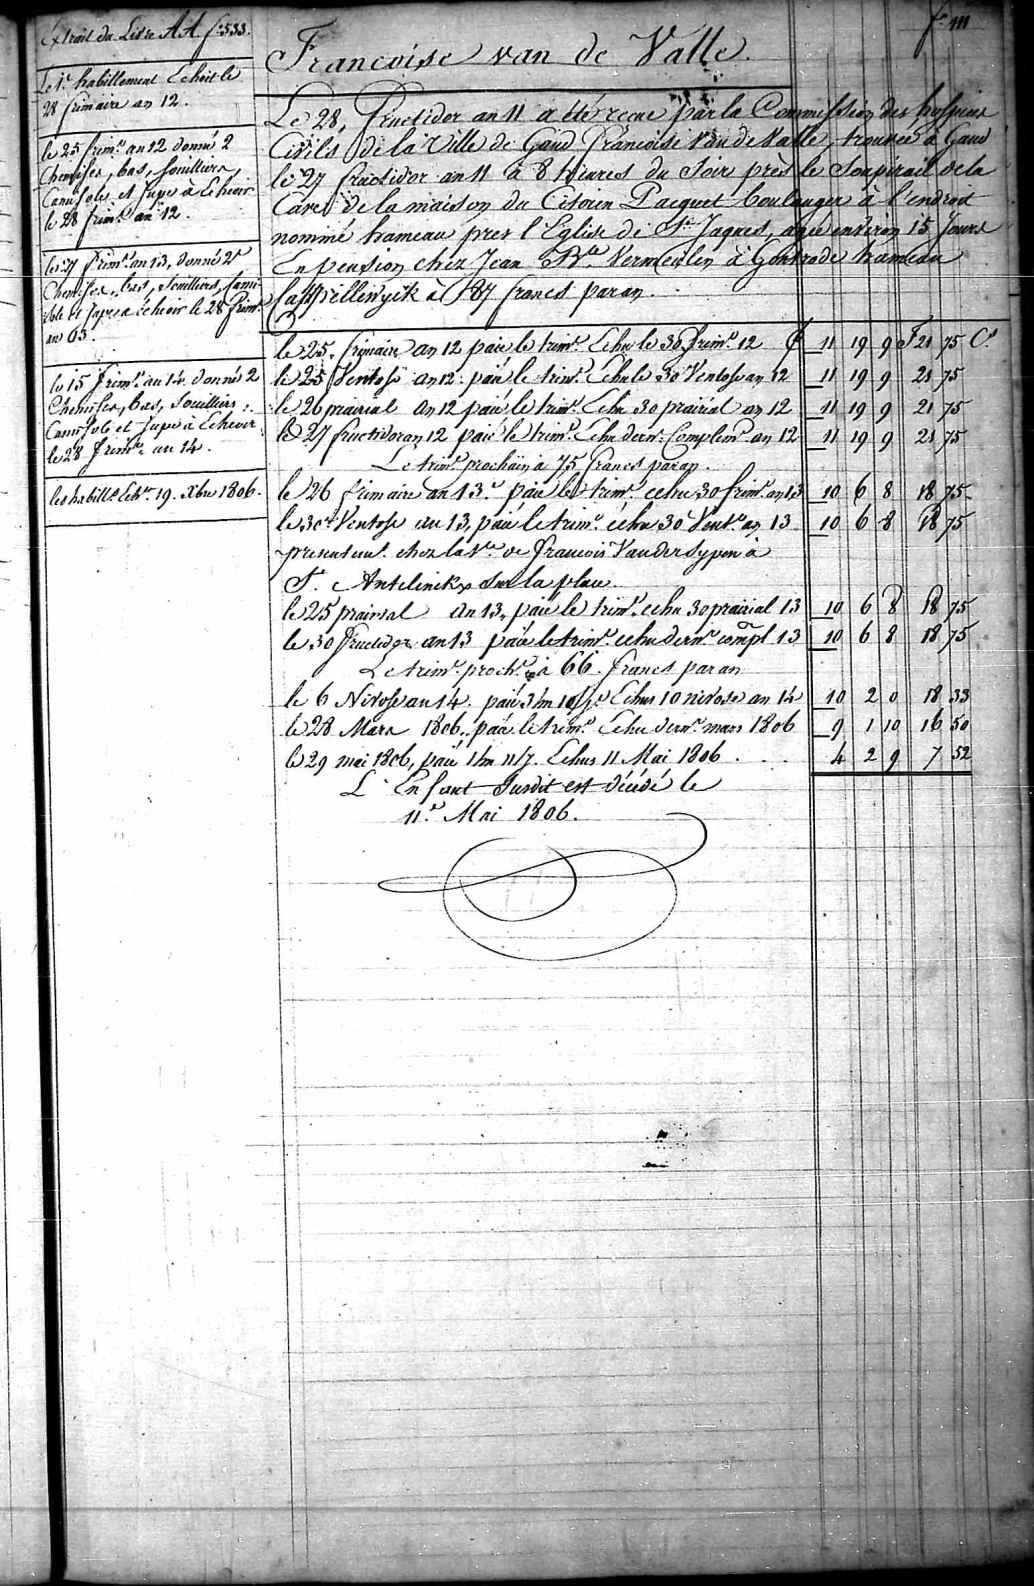 Extrait du Livre AA. fo 533.
Le 1r habillement Echoit le
28 frimaire an 12.
le 25 frimre an 12 donné 2
Chemises, bas, souilliers
Camisole, et Jupe à Echeoir
le 28 frimre an 12.
le 27 frimre an 13, donné 2
Chemises, bas, souilliers, Cami-
sole et Jupe à écheoir le 28 frimre
an 13.
le 15 frimre an 14 donné 2
Chemises, bas, souilliers,
Camisole et Jupe à Echeoir
le 28 frimre an 14.
les habillts Echus 19. Xbre 1806.
fo 111
Francoise van de Valle.
Le 28, fructidor an 11 a été recue par la Commission des hospices
Civils de la Ville de Gand Françoise van de Valle, trouvée à Gand
le 27 fructidor an 11 à 8 heures du Soir près le Soupirail de la
Cave de la maison du Citoien Pacquet boulanger à l'endroit
nommé hameau pres l'Eglise de St Jaques, agée environ 15 Jours
En pension chez Jean Bte Vermeulen à Gontrode hameau
à 87 francs par an.
le 25. frimaire an 12 paié le trimre Echu le 30 frimre 12 11 19 9 F 21 75 Cs
le 25 Ventose an 12 paié le trimre Echu le 30 Ventose an 12 11 19 9 21 75
le 26 prairial an 12 paié le trimre Echu 30 prairial an 12 11 19 9 21 75
le 27 fructidor an 12 paié le trimre Echu dernr Complemre an 12 11 19 9 21 75
Le trimre prochain à 75 francs par an.
le 26 frimaire an 13e paié le trimre echu 30 frimre an 13 10 6 8 18 75
le 30 Ventose an 13, paié le trimre échu 30 Ventse an 13 10 6 8 18 75
presentemt chez la Ve de francois Vandersypen à
St. Antelinckx sur la place.
le 25 prairial an 13, paié le trimre echu 30 prairial 13 10 6 8 18 75
le 30 fructidor an 13 paié le trimre echu dernr compl 13 10 6 8 18 75
Le trimre prochn à 66 francs par an
le 6 Nivose an 14. paié 3/m 10/J. Echus 10 nivose an 14 10 2 0 18 33
le 28 Mars 1806, paié le trimre Echu dernr mars 1806 9 1 10 16 50
le 29 mai 1806, paié 1/m 11/J. Echus 11 Mai 1806 . . . 4 2 9 7 52
L'Enfant Susdit est décédé le
11e Mai 1806.